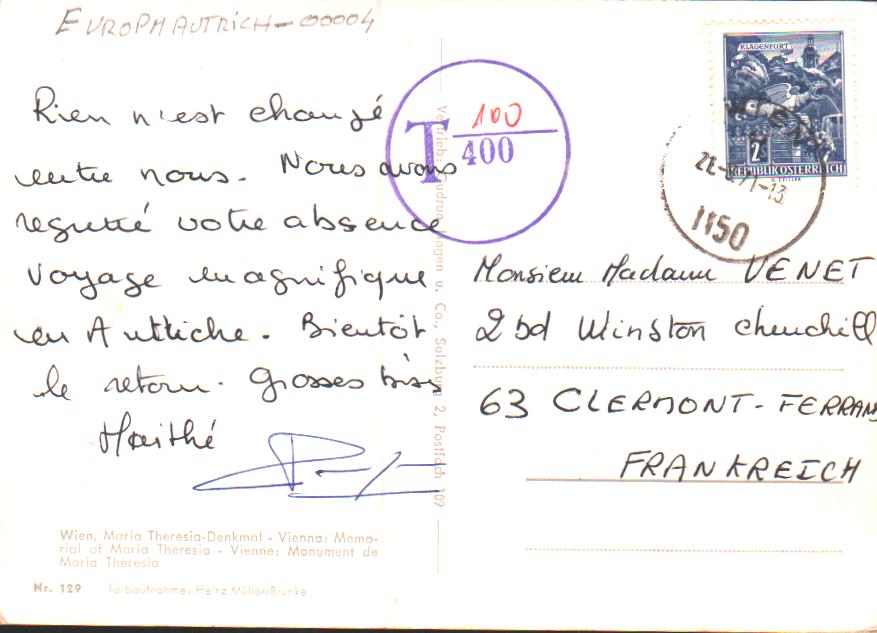 EUROPHAUTRICH-00004
Rien n'est changé
entre nous. Nous avons
regretté votre absence
voyage magnifique
en Autriche. Bientôt
le retour. Grosses bises
Maithé
T 100
400
KLAGENFURT
2S
REPUBLIK ÖSTERREICH
WIEN
1150
Monsieur Madame VENET
2 bd Winston Churchill
63 CLERMONT-FERRAND
FRANKREICH
Vertrieb: Gudrun Wagen u. Co., Salzburg 2, Postfach 107
Wien, Maria Theresia-Denkmal - Vienna: Memo-
rial of Maria Theresia - Vienne: Monument de
Maria Theresia
Nr. 129 Farbaufnahme: Heinz Müller-Brunke